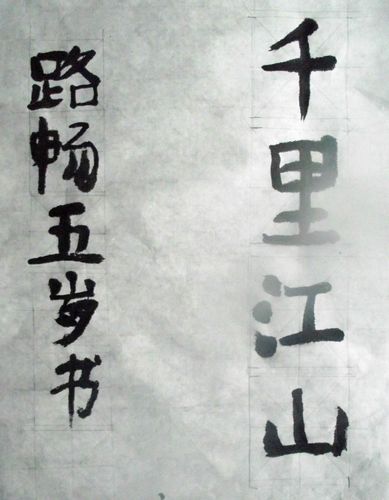 千里江山
路畅五岁书